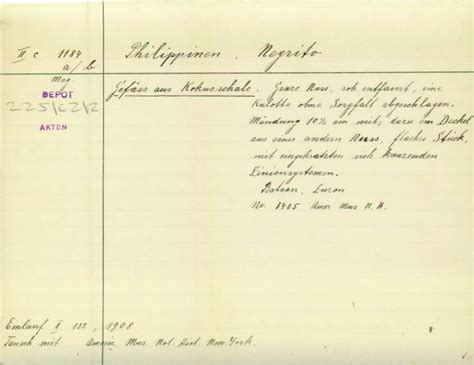 II c 1184 a/b Philippinen. Negrito
Meg.
DEPOT
AKTEN
Gefäss aus Kokusschale. Ganze Nuss, roh entfasert, eine
Kalotte ohne Sorgfalt abgeschlagen.
Mündung 10½ cm weit, dazu ein Deckel
aus einer andern Nuss, flaches Stück,
mit eingekratzten sich kreuzenden
Liniensystemen.
Bataan, Luzon
No. 3405 Amer Mus. N. H.
Einlauf II 133, 1908
Tausch mit Americ. Mus. Nat. Hist. New York.